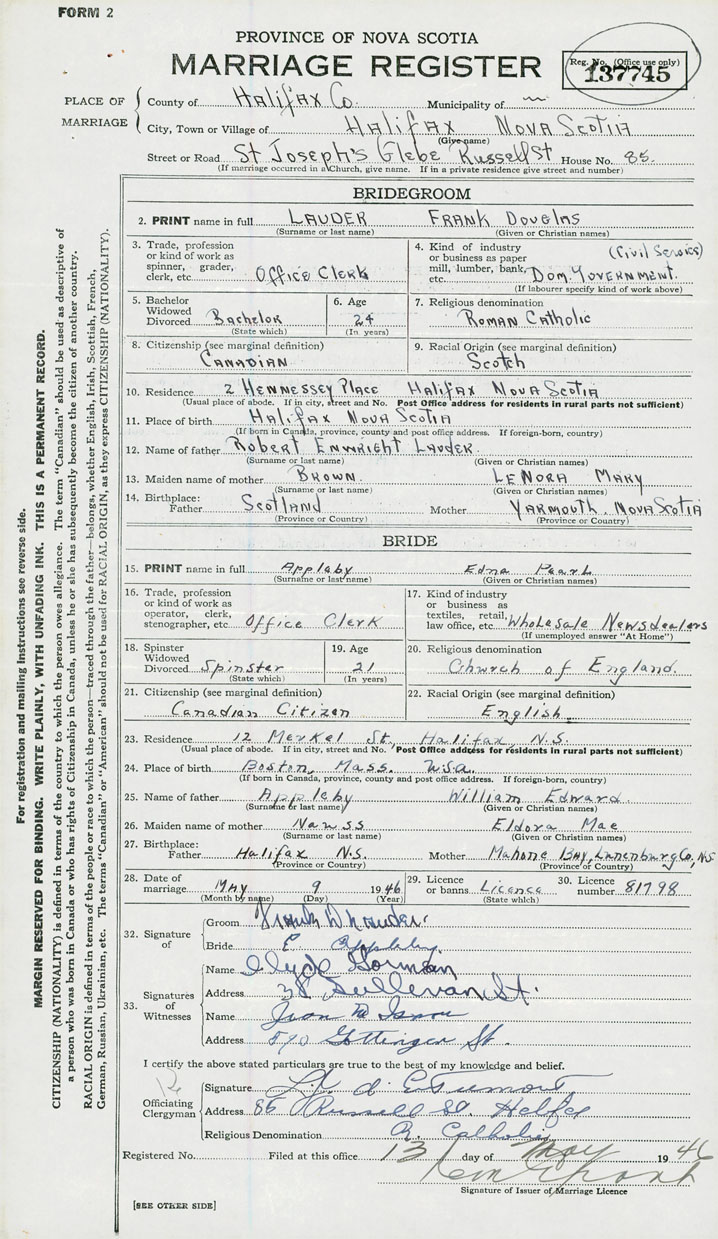 FORM 2
PROVINCE OF NOVA SCOTIA
MARRIAGE REGISTER
Reg. No. (Office use only)
137745
PLACE OF MARRIAGE
County of Halifax Co. Municipality of —
City, Town or Village of Halifax Nova Scotia
(Give name)
Street or Road St Joseph's Glebe Russell St House No. 85.
(If marriage occurred in a Church, give name. If in a private residence give street and number)
BRIDEGROOM
2. PRINT name in full Lauder Frank Douglas
(Surname or last name) (Given or Christian names)
3. Trade, profession or kind of work as spinner, grader, clerk, etc. Office Clerk
4. Kind of industry or business as paper mill, lumber, bank, etc. (Civil Service) Dom. Government.
(If labourer specify kind of work above)
5. Bachelor Widowed Divorced Bachelor
(State which)
6. Age 24
(In years)
7. Religious denomination
Roman Catholic
8. Citizenship (see marginal definition)
Canadian
9. Racial Origin (see marginal definition)
Scotch
10. Residence 2 Hennessey Place Halifax Nova Scotia
(Usual place of abode. If in city, street and No. Post Office address for residents in rural parts not sufficient)
11. Place of birth Halifax Nova Scotia
(If born in Canada, province, county and post office address. If foreign-born, country)
12. Name of father Robert Enwright Lauder.
(Surname or last name) (Given or Christian names)
13. Maiden name of mother Brown. LeNora Mary
(Surname or last name) (Given or Christian names)
14. Birthplace: Father Scotland Mother Yarmouth, Nova Scotia
(Province or Country) (Province or Country)
BRIDE
15. PRINT name in full Appleby Edna Pearl
(Surname or last name) (Given or Christian names)
16. Trade, profession or kind of work as operator, clerk, stenographer, etc Office Clerk
17. Kind of industry or business as textiles, retail, law office, etc. Wholesale Newsdealers
(If unemployed answer "At Home")
18. Spinster Widowed Divorced Spinster
(State which)
19. Age 21
(In years)
20. Religious denomination
Church of England.
21. Citizenship (see marginal definition)
Canadian Citizen
22. Racial Origin (see marginal definition)
English.
23. Residence 12 Merkel St. Halifax, N.S.
(Usual place of abode. If in city, street and No. Post Office address for residents in rural parts not sufficient)
24. Place of birth Boston, Mass. USA.
(If born in Canada, province, county and post office address. If foreign-born, country)
25. Name of father Appleby William Edward.
(Surname or last name) (Given or Christian names)
26. Maiden name of mother Nauss Eldora Mae
(Surname or last name) (Given or Christian names)
27. Birthplace: Father Halifax N.S. Mother Mahone Bay, Lunenburg Co, NS
(Province or Country) (Province or Country)
28. Date of marriage May 9 1946
(Month by name) (Day)
29. Licence or banns Licence
30. Licence number 81798
32. Signature of
Groom Frank D Lauder.
Bride E Appleby.
33. Signatures of Witnesses
Name Clyde Gorman
Address 38 Sullevan St.
Name Jean
Address 590 Gottingen St.
I certify the above stated particulars are true to the best of my knowledge and belief.
Officiating Clergyman
Signature
Address 85 Russell St. Halifax
Religious Denomination R. Catholic
Registered No. Filed at this office 13 day of May 1946
Signature of Issuer of Marriage Licence
[SEE OTHER SIDE]
For registration and mailing instructions see reverse side.
MARGIN RESERVED FOR BINDING. WRITE PLAINLY, WITH UNFADING INK. THIS IS A PERMANENT RECORD.
CITIZENSHIP (NATIONALITY) is defined in terms of the country to which the person owes allegiance. The term "Canadian" should be used as descriptive of
a person who was born in Canada or who has rights of Citizenship in Canada, unless he or she has subsequently become the citizen of another country.
RACIAL ORIGIN is defined in terms of the people or race to which the person—traced through the father—belongs, whether English, Irish, Scottish, French,
German, Russian, Ukrainian, etc. The terms "Canadian" or "American" should not be used for RACIAL ORIGIN, as they express CITIZENSHIP (NATIONALITY).